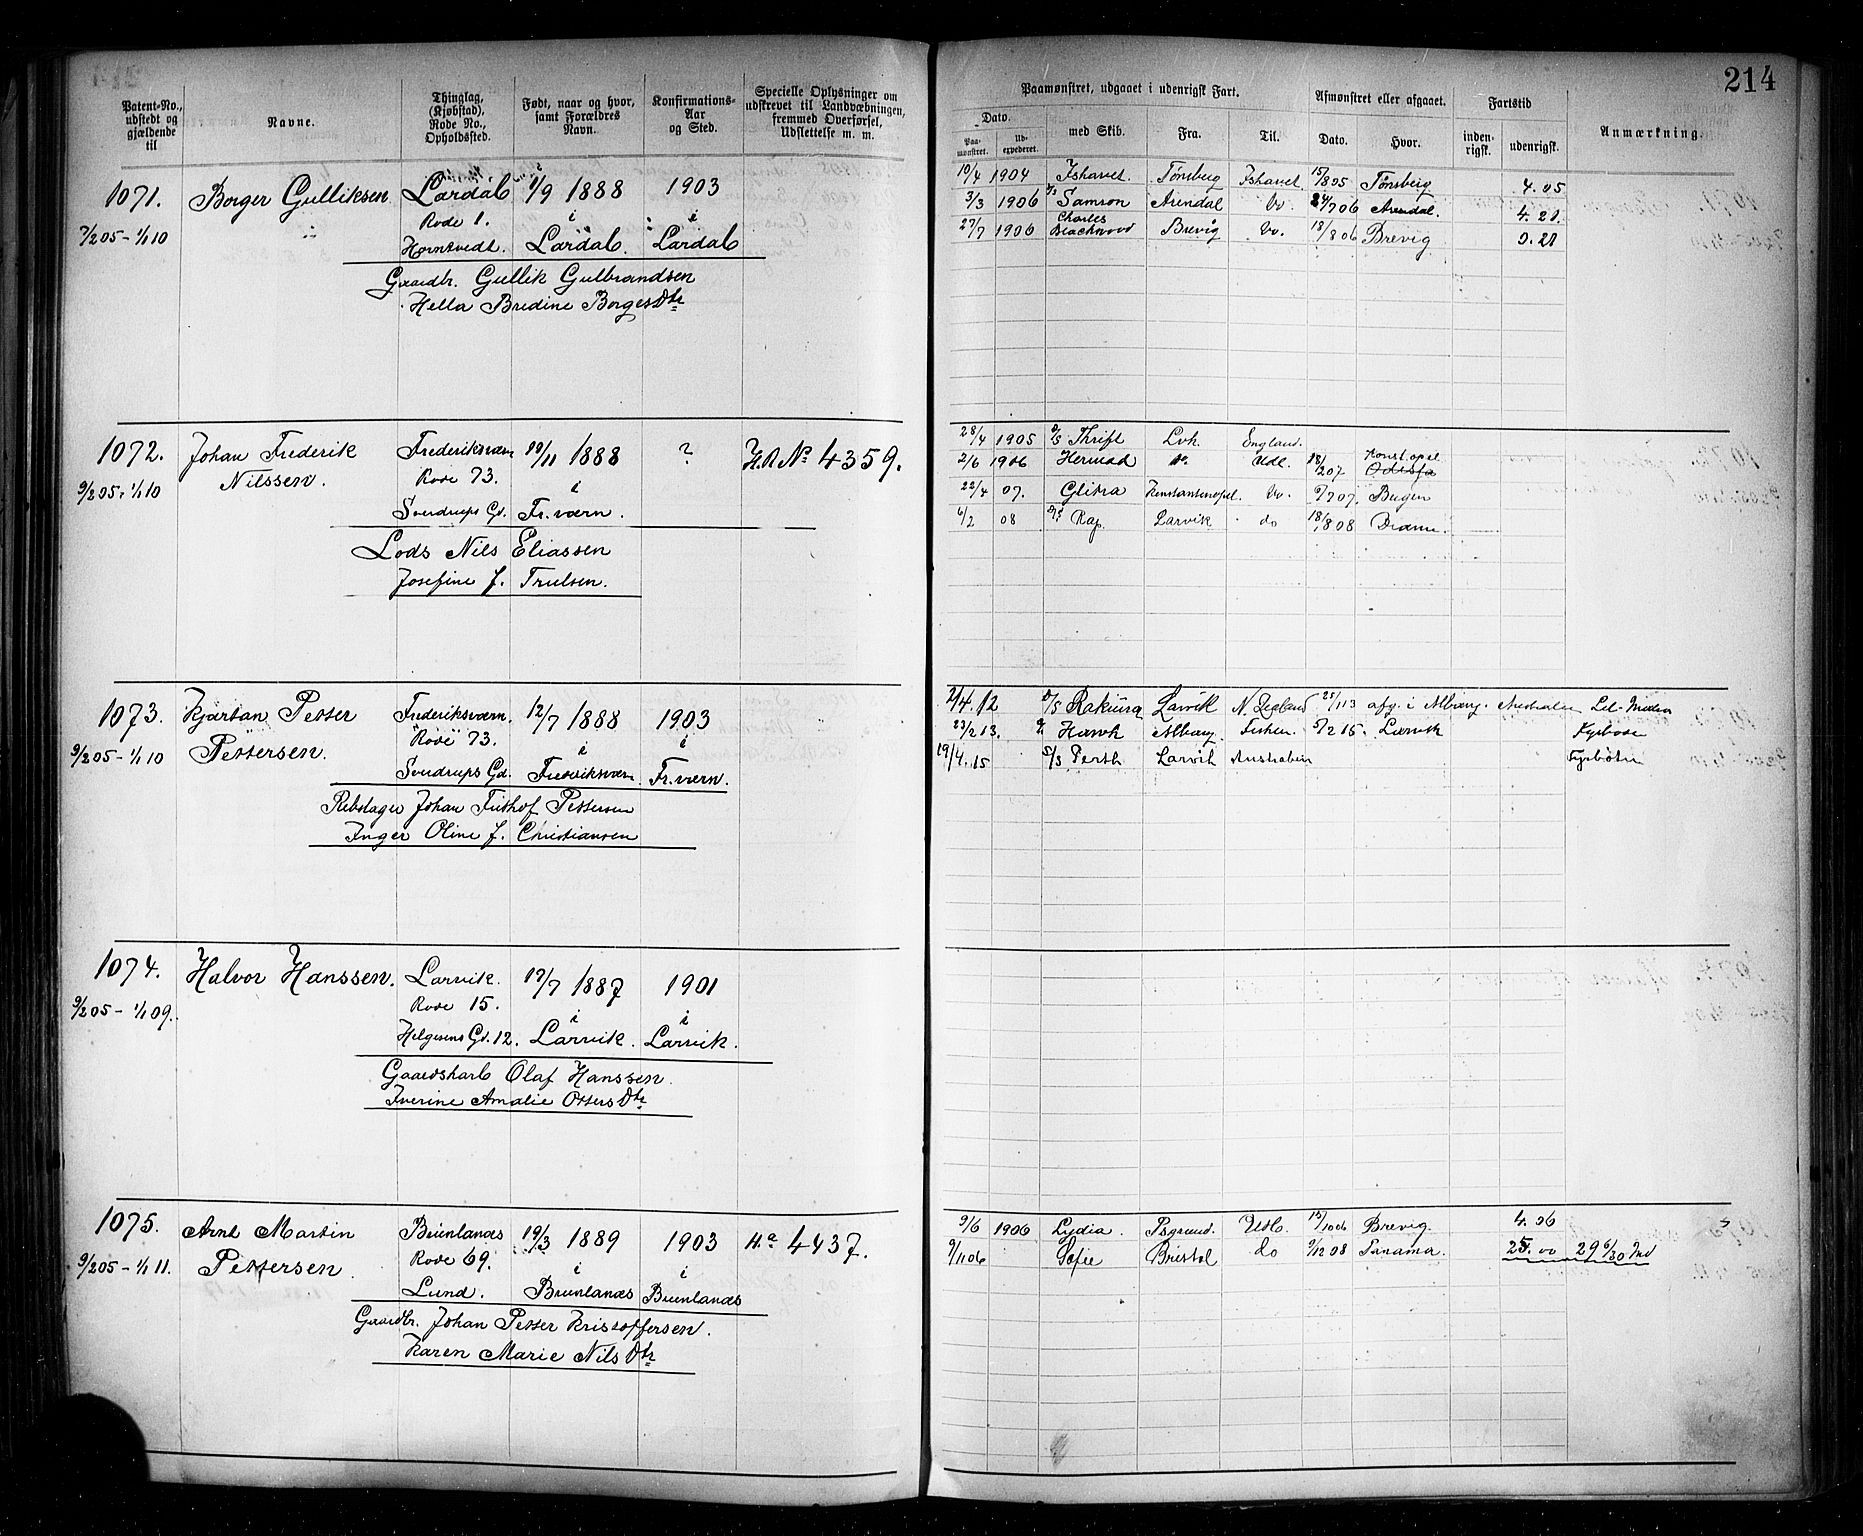 214
Patent-No., udstedt og gjældende til
Navne.
Thinglag, (Kjøbstad), Rode No., Opholdssted.
Født, naar og hvor, samt Forældres Navn.
Konfirmations-Aar og Sted.
Specielle Oplysninger om udskrevet til Landvæbningen, fremmed Overførsel, Udslettelse m. m.
Paamønstret, udgaaet i udenrigsk Fart.
Dato.
Paamønstret.
Udexpederet.
med Skib.
Fra.
Til.
Afmønstret eller afgaaet.
Dato.
Hvor.
Fartstid
indenrigsk.
udenrigsk.
Anmærkning.
1071. Borger Gulliksen Lardal 1/9 1888 1903
Rode 1. i i
7/2 05 - 1/1 10 Horntvedt. Lardal. Lardal
Gaardbr. Gullik Gulbrandsen
Hella Bredine BorgesDtr
10/4 1904 Ishavet Tønsberg Ishavet 15/8 05 Tønsberg 4.05
3/3 1906 S/S Samson Arendal Do 24/7 06 Arendal. 4.21
27/7 1906 Charles Blachwood Brevig Do. 18/8 06 Brevig 0.21
1072. Johan Frederik Frederiksværn 19/11 1888 ? H.R No 4359.
Nilssen. Rode 73. i
9/2 05 - 1/1 10 Sverdrups Gd. Fr.værn.
Lods Nils Eliassen
Josefine f. Trulsen.
28/4 1905 D/S Thrift Lvk. England.
2/6 1906 Hermod Do. Udl. 18/2 07 Konst.opel Odessa
22/4 07. Glitra Konstantinopel. Do. 9/7 07. Bergen
6/2 08 D/S Rap. Larvik do 18/8 08 Dramn.
1073. Kjartan Petter Frederiksværn. 12/7 1888 1903
Pettersen. Rode 73. i i
9/2 05 - 1/1 10 Sverdrups Gd. Fredriksværn Fr.værn.
Rebslager Johan Frithof Pettersen
Inger Oline f. Christiansen
2/4.12 D/S Rakiura Larvik N. Zealand 25/1 13 afg. i Albany. Australien Let-Matros
23/2 13. Hawk Albany. Fisken. 5/2 15. Larvik Fyrbøder
19/4.15 S/S Perth Larvik Australien Fyrbøter
1074. Halvor Hanssen. Larvik. 19/7 1887 1901
Rode 15. i i
9/2 05 - 1/1 09. Helgesens Gd. 12. Larvik. Larvik.
Gaardskarl Olaf Hanssen
Iverine Amalie OttersDtr
1075. Arnt Martin Brunlanæs 19/3 1889 1903 H.a 4437.
Pettersen Rode 69. i i
9/2 05 - 1/1 11. Lund. Brunlanæs Brunlanæs
Gaardbr. Johan Petter Kristoffersen.
Karen Marie NilsDtr
9/6 1906 Lydia Psgrund. Udl. 15/10 06 Brevig. 4.06
9/11 06 Sofie Bristol do 9/12 08 Panama. 25.00 29 6/30 Md